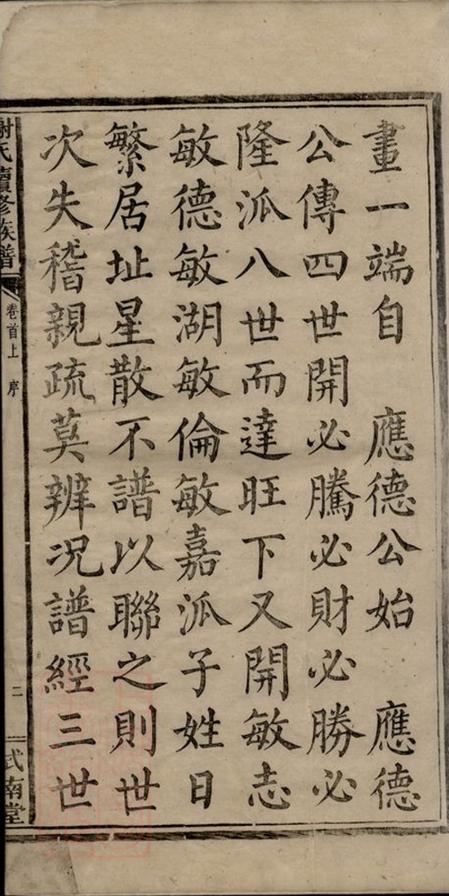 畫一端自　應德公始　應德
公傳四世開必騰必財必勝必
隆派八世而達旺下又開敏志
敏德敏湖敏倫敏嘉派子姓日
繁居址星散不譜以聯之則世
次失稽親疏莫辨况譜經三世
謝氏續修族譜
卷首上　序
二
式南堂